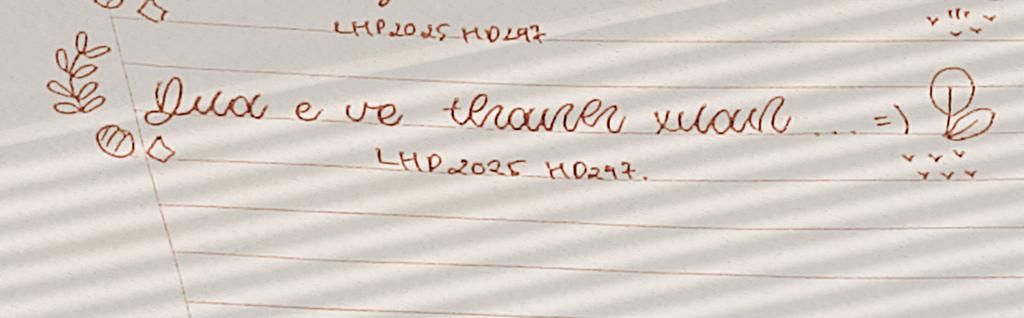 LHP2025 HD297
Dua e ve thanh xuan ... =)
LHP2025 HD297.